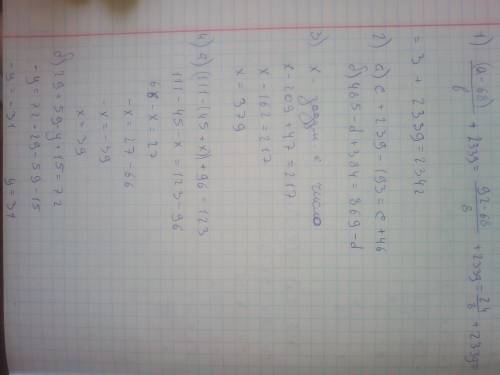 1) (a-68)/8 + 2339 = 92-68/8 + 2339 = 24/8 + 2339 =
= 3 + 2339 = 2342
2) a) c + 239 - 193 = c + 46
б) 485 - d + 384 = 869 - d
3) x - число
x - 209 + 47 = 217
x - 162 = 217
x = 379
4) a) (111 - (45 + x)) + 96 = 123
111 - 45 - x = 123 - 96
66 - x = 27
-x = 27 - 66
-x = -39
x = 39
б) 29 + 59 - y + 15 = 72
-y = 72 - 29 - 59 - 15
-y = -31 y = 31